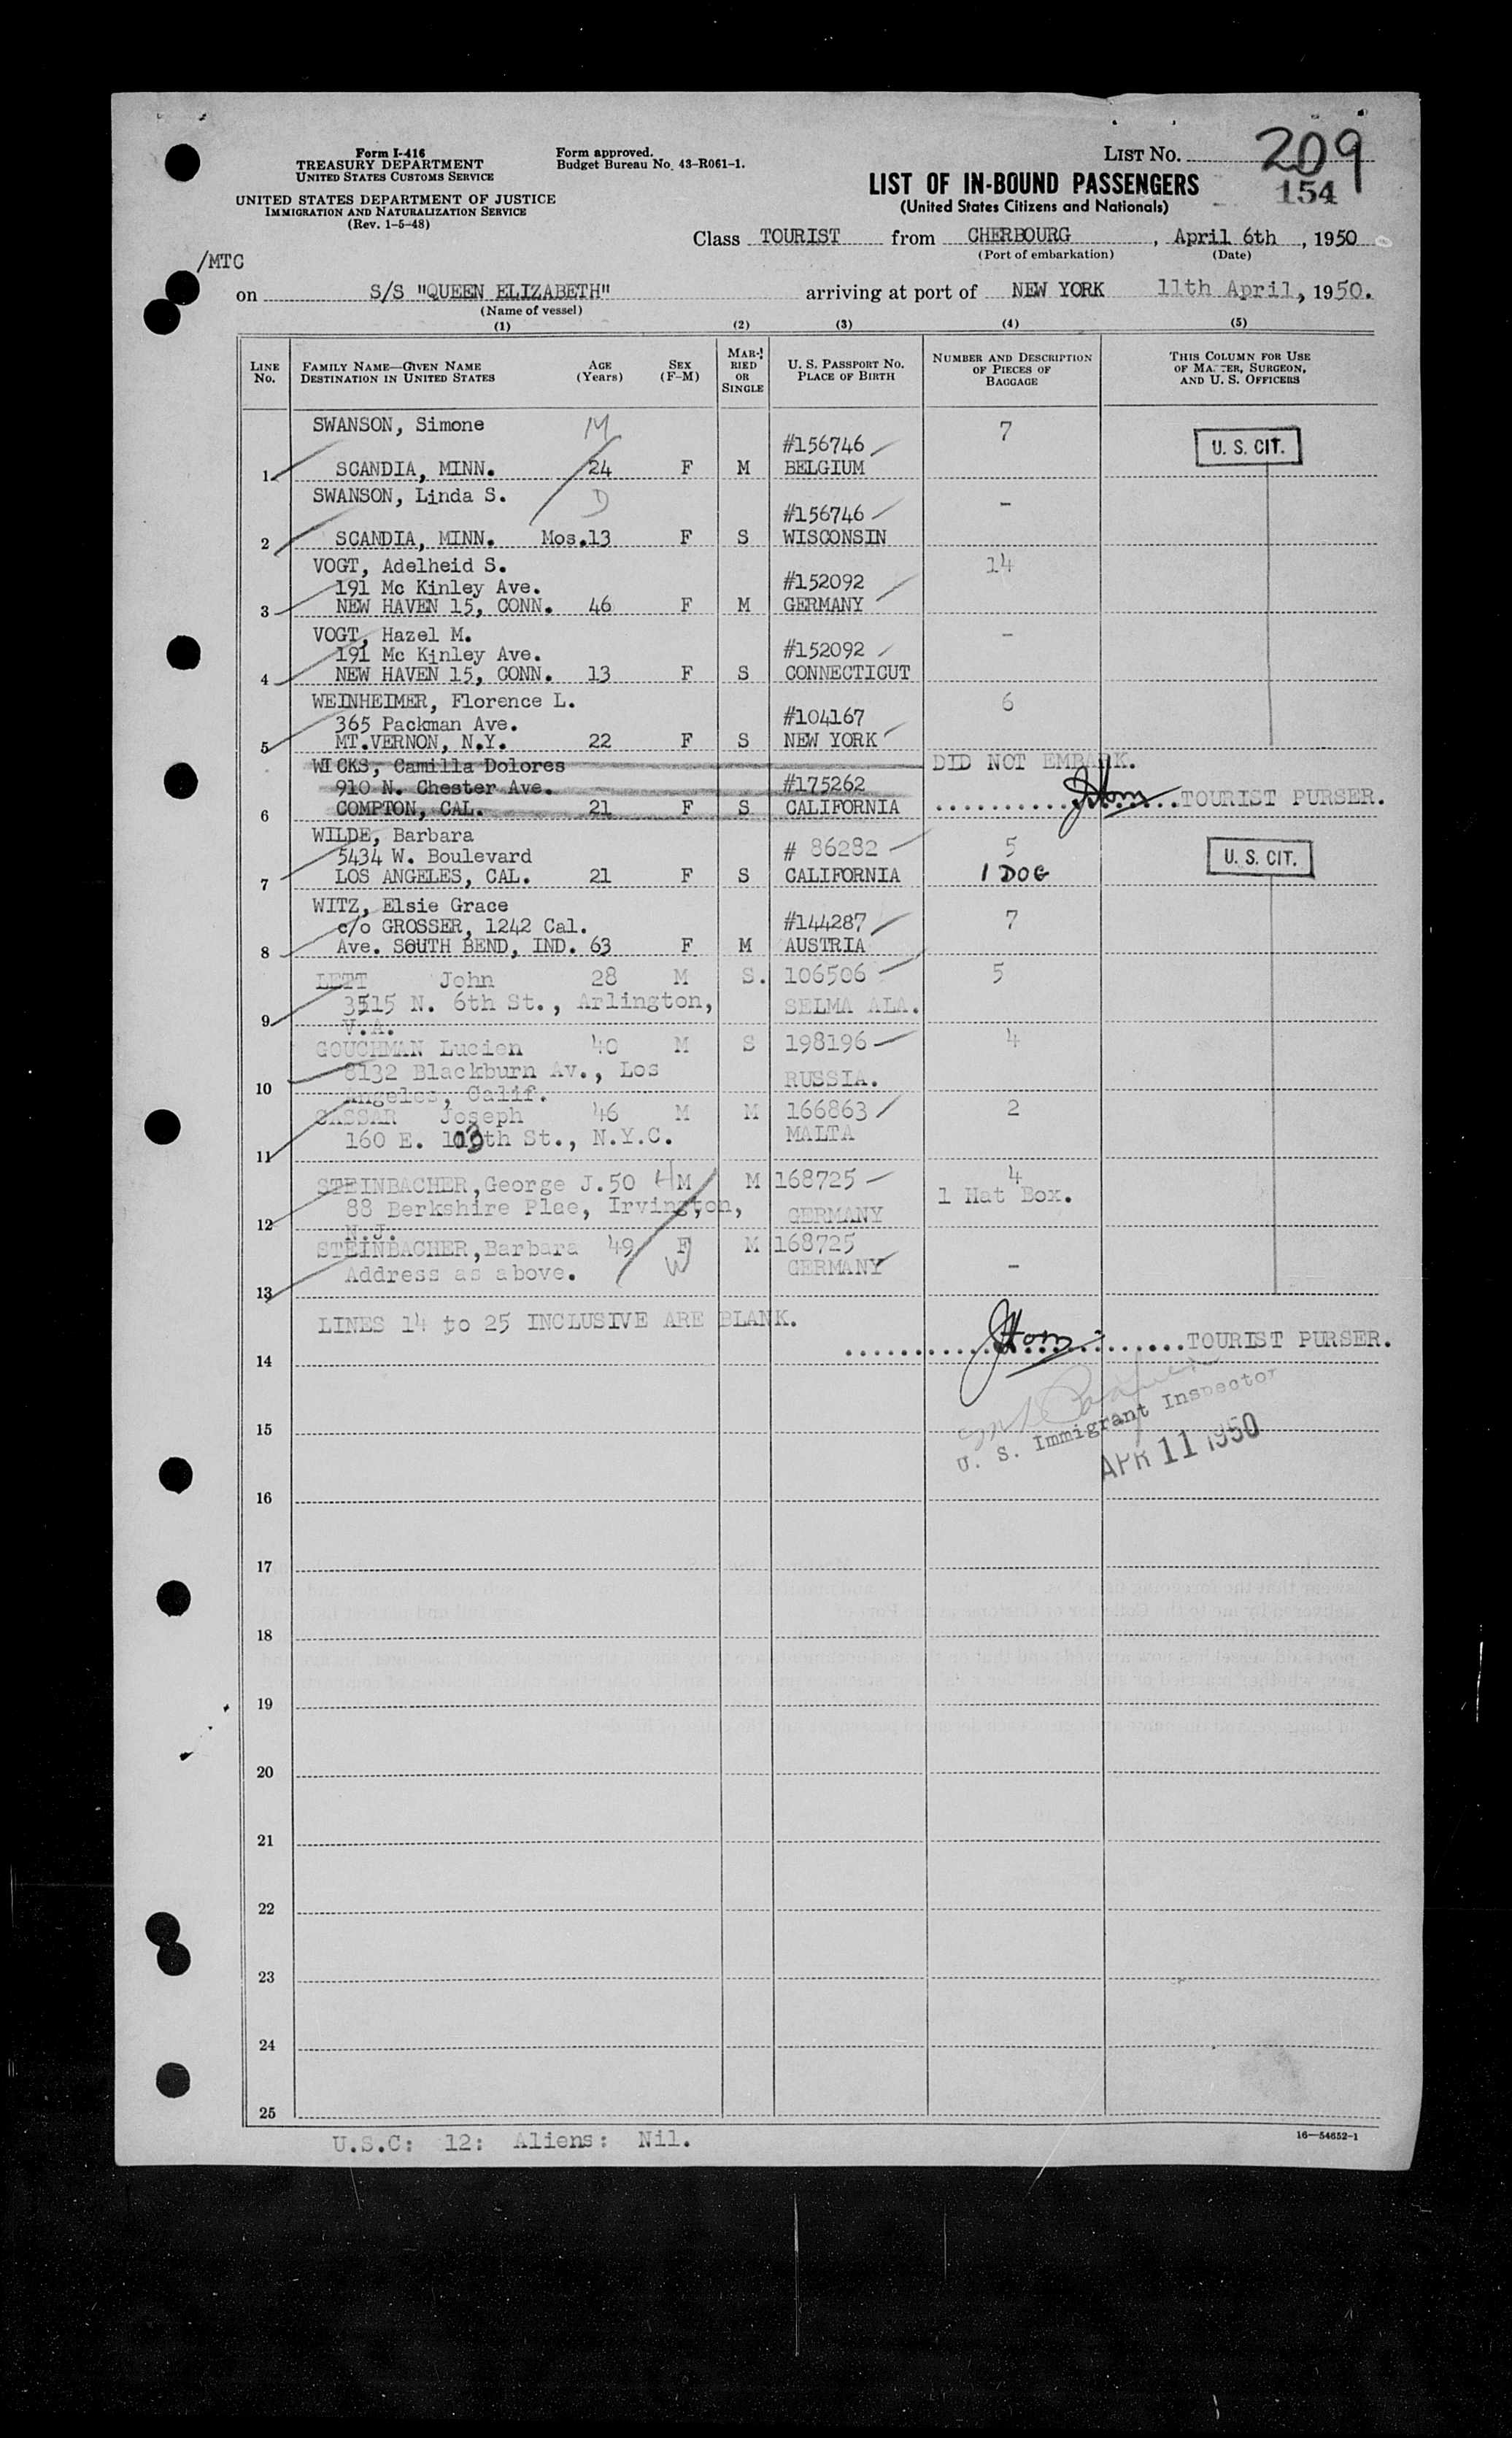 Form I-416
TREASURY DEPARTMENT
UNITED STATES CUSTOMS SERVICE
UNITED STATES DEPARTMENT OF JUSTICE
IMMIGRATION AND NATURALIZATION SERVICE
(Rev. 1-5-48)
Form approved.
Budget Bureau No. 43-R061-1.
LIST No. 209
154
LIST OF IN-BOUND PASSENGERS
(United States Citizens and Nationals)
Class TOURIST from CHERBOURG, April 6th, 1950
(Port of embarkation) (Date)
/MTC
on S/S "QUEEN ELIZABETH" arriving at port of NEW YORK 11th April, 1950.
(Name of vessel)
(1) (2) (3) (4) (5)
LINE No.
FAMILY NAME—GIVEN NAME
DESTINATION IN UNITED STATES
AGE (Years)
SEX (F-M)
MARRIED OR SINGLE
U. S. PASSPORT NO.
PLACE OF BIRTH
NUMBER AND DESCRIPTION OF PIECES OF BAGGAGE
THIS COLUMN FOR USE OF MASTER, SURGEON, AND U. S. OFFICERS
SWANSON, Simone M #156746 7 U. S. CIT.
1 SCANDIA, MINN. 24 F M BELGIUM
SWANSON, Linda S. D #156746 -
2 SCANDIA, MINN. Mos.13 F S WISCONSIN
VOGT, Adelheid S. 14
191 Mc Kinley Ave. #152092
3 NEW HAVEN 15, CONN. 46 F M GERMANY
VOGT, Hazel M. -
191 Mc Kinley Ave. #152092
4 NEW HAVEN 15, CONN. 13 F S CONNECTICUT
WEINHEIMER, Florence L. 6
365 Packman Ave. #104167
5 MT.VERNON, N.Y. 22 F S NEW YORK
WICKS, Camilla Dolores DID NOT EMBARK.
910 N. Chester Ave. #175262
6 COMPTON, CAL. 21 F S CALIFORNIA TOURIST PURSER.
WILDE, Barbara
5434 W. Boulevard # 86282 5 U. S. CIT.
7 LOS ANGELES, CAL. 21 F S CALIFORNIA 1 DOG
WITZ, Elsie Grace
c/o GROSSER, 1242 Cal. #144287 7
8 Ave. SOUTH BEND, IND. 63 F M AUSTRIA
LETT John 28 M S. 106506 5
3515 N. 6th St., Arlington, SELMA ALA.
9 V.A.
GOUCHMAN Lucien 40 M S 198196 4
8132 Blackburn Av., Los RUSSIA.
10 Angeles, Calif.
CASSAR Joseph 46 M M 166863 2
160 E. 103th St., N.Y.C. MALTA
11
STEINBACHER, George J. 50 H M M 168725 4
88 Berkshire Plae, Irvington, GERMANY 1 Hat Box.
12 N.J.
STEINBACHER, Barbara 49 F M 168725
Address as above. W GERMANY -
13
LINES 14 to 25 INCLUSIVE ARE BLANK.
TOURIST PURSER.
14
U. S. Immigrant Inspector
15
APR 11 1950
16
17
18
19
20
21
22
23
24
25
U.S.C: 12: Aliens: Nil.
16—54652-1